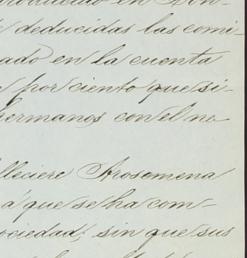 producido en Don-
deducidas las comi-
ado en la cuenta
por ciento que si-
hermanos con el no
lleciere Arosemena
á que se ha com-
ociedad, sin que sus